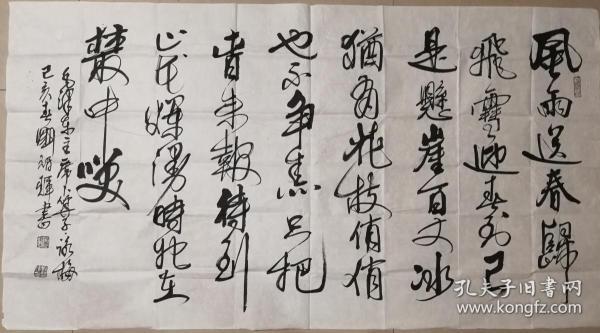 風雨送春歸
飛雪迎春到已
是懸崖百丈冰
猶有花枝俏俏
也不爭春只把
春來報待到
山花爛漫時她在
叢中笑
毛澤東主席卜算子詠梅
己亥春國輝書
孔夫子旧书网
www.kongfz.com